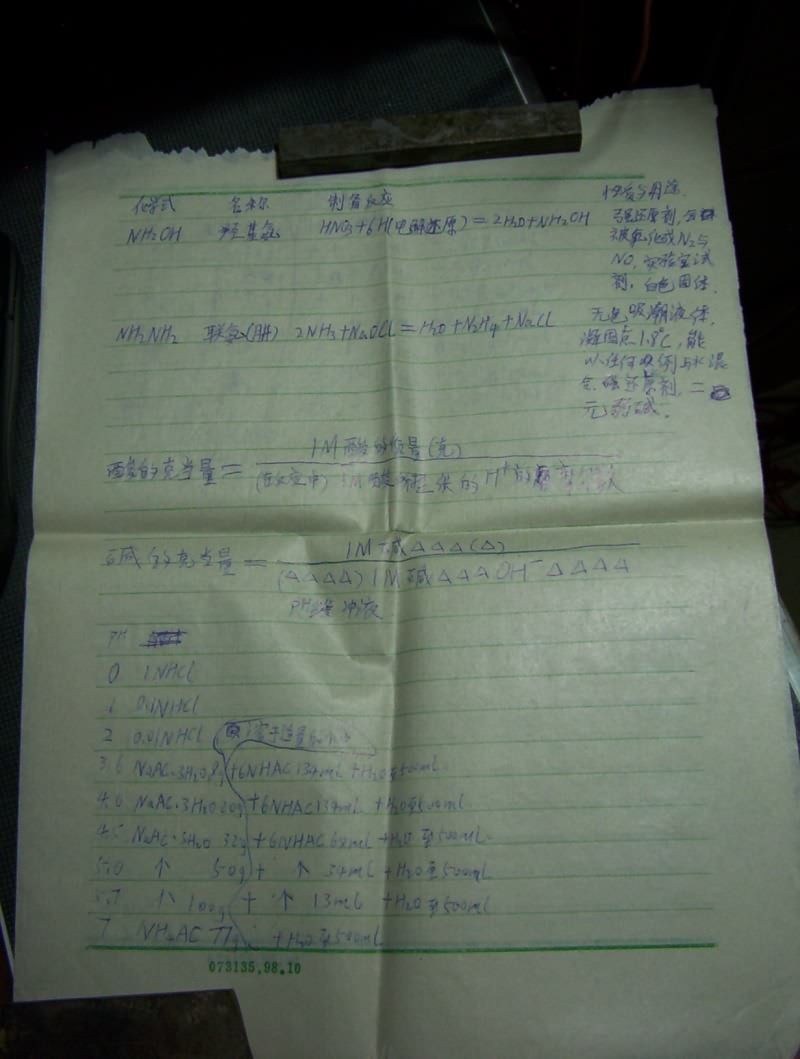 化学式 名称 制备反应 性质与用途
NH2OH 羟基氨 HNO3+6H(电解还原)=2H2O+NH2OH 强还原剂,会
被氧化成N2与
NO,实验室试
剂,白色固体.
NH2NH2 联氨(肼) 2NH3+NaOCl=H2O+N2H4+NaCl 无色吸潮液体.
凝固点1.8℃,能
以任何比例与水混
合.强还原剂,二
元弱碱.
1M酸的质量(克)
酸的克当量=
(在反应中)1M酸所提供的H+的摩尔个数
1M碱△△△(△)
碱的克当量=
(△△△△)1M碱△△△OH-△△△△
PH缓冲液
PH
0 1NHCl
1 0.1NHCl
2 0.01NHCl 溶于适量的水中
3.6 NaAC·3H2O8g+6NHAC134ml+H2O至500ml
4.0 NaAC·3H2O20g+6NHAC134ml+H2O至500ml
4.5 NaAC·3H2O 32g+6NHAC68ml+H2O至500ml
5.0 ↑ 50g+ ↑ 34ml+H2O至500ml
5.7 ↑ 100g+ ↑ 13ml+H2O至500ml
7 NH4AC 77g +H2O至500ml
073135.98.10